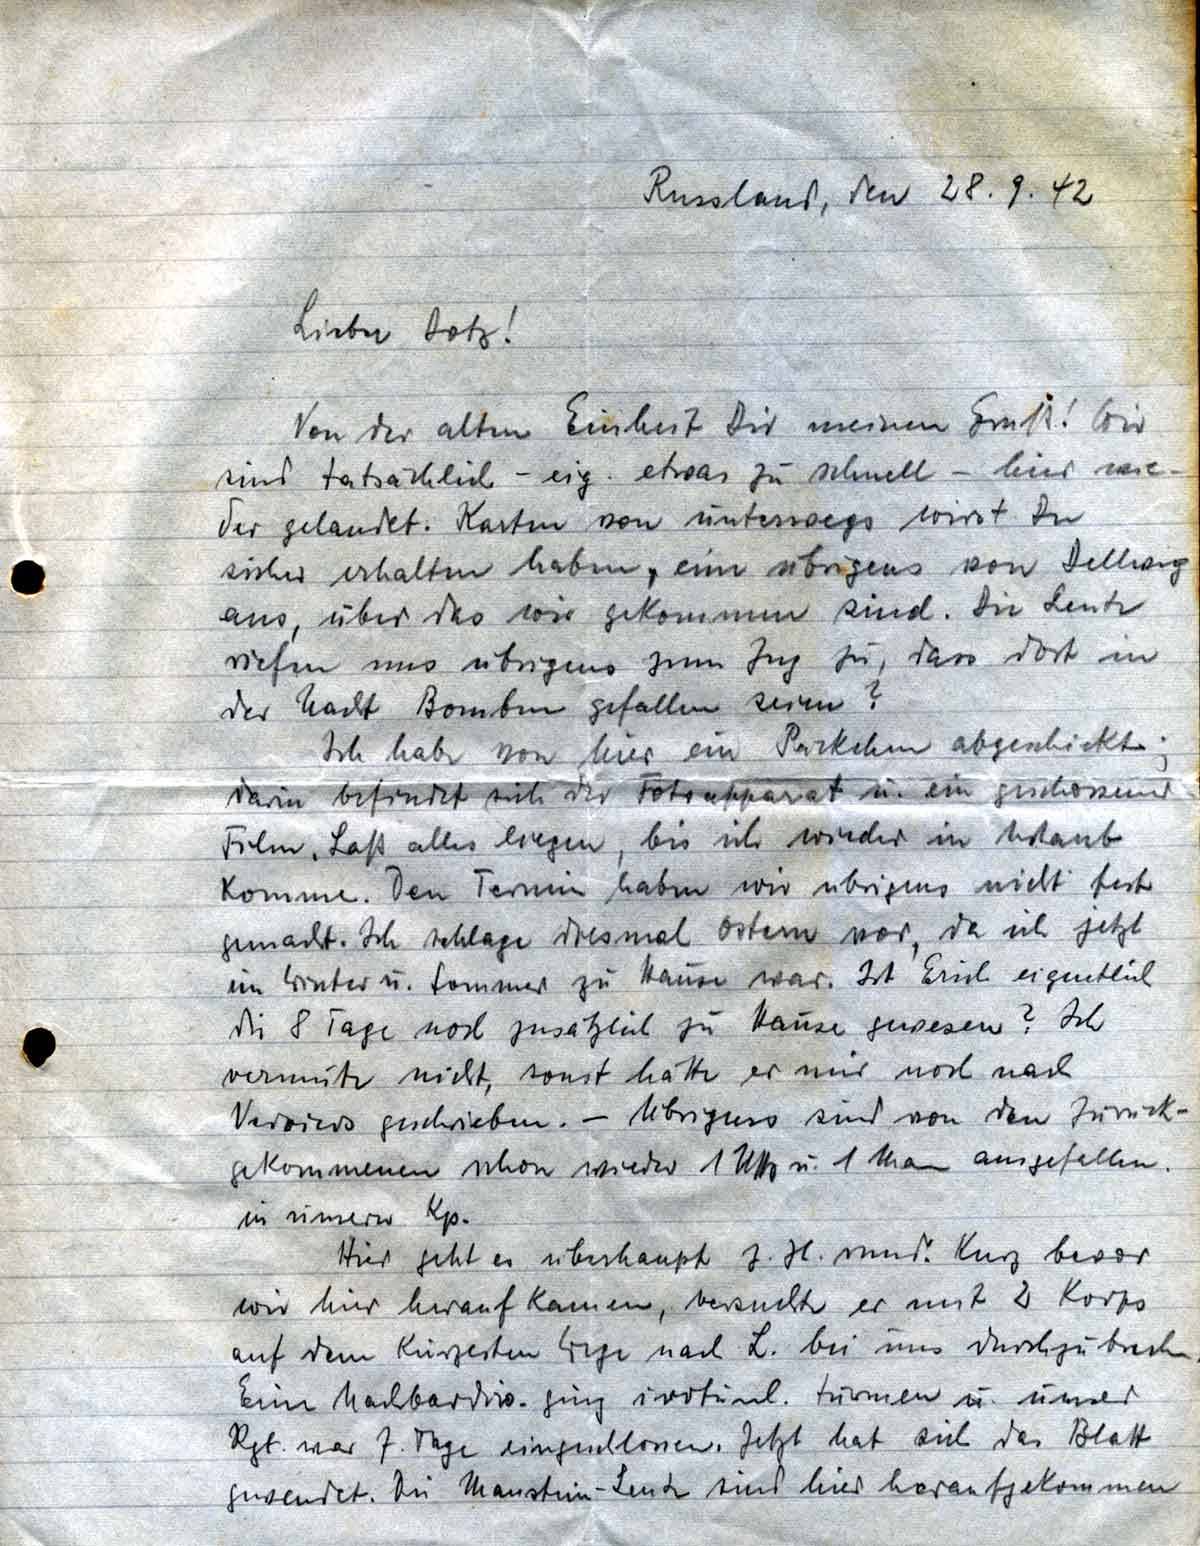 Russland, den 28. 9. 42
Lieber Dotz!
Von der alten Einheit Dir meinen Gruß! Wir
sind tatsächlich – eig. etwas zu schnell – hier wie-
der gelandet. Karten von unterwegs wirst Du
sicher erhalten haben, eine übrigens von Dellwig
aus, über das wir gekommen sind. Die Leute
riefen uns übrigens zum Zug zu, dass dort in
der Nacht Bomben gefallen seien?
Ich habe von hier ein Päckchen abgeschickt;
darin befindet sich der Fotoapparat u. ein geschossener
Film. Laß alles liegen, bis ich wieder in Urlaub
komme. Den Termin haben wir übrigens nicht fest
gemacht. Ich schlage diesmal Ostern vor, da ich jetzt
im Winter u. Sommer zu Hause war. Ist Erich eigentlich
die 8 Tage noch zusätzlich zu Hause gewesen? Ich
vermute nicht, sonst hätte er mir noch nach
Verviers geschrieben. – Übrigens sind von den Zurück-
gekommenen schon wieder 1 Uffz u. 1 Man ausgefallen.
in unserer Kp.
Hier geht es überhaupt z. Zt. rund. Kurz bevor
wir hier herauf kamen, versuchte er mit 2 Korps
auf dem kürzesten Wege nach L. bei uns durchzubrechen.
Eine Nachbardiv. ging türmen u. unser
Rgt. war 7. Tage eingeschlossen. Jetzt hat sich das Blatt
gewendet. Die Manstein-Leute sind hier heraufgekommen